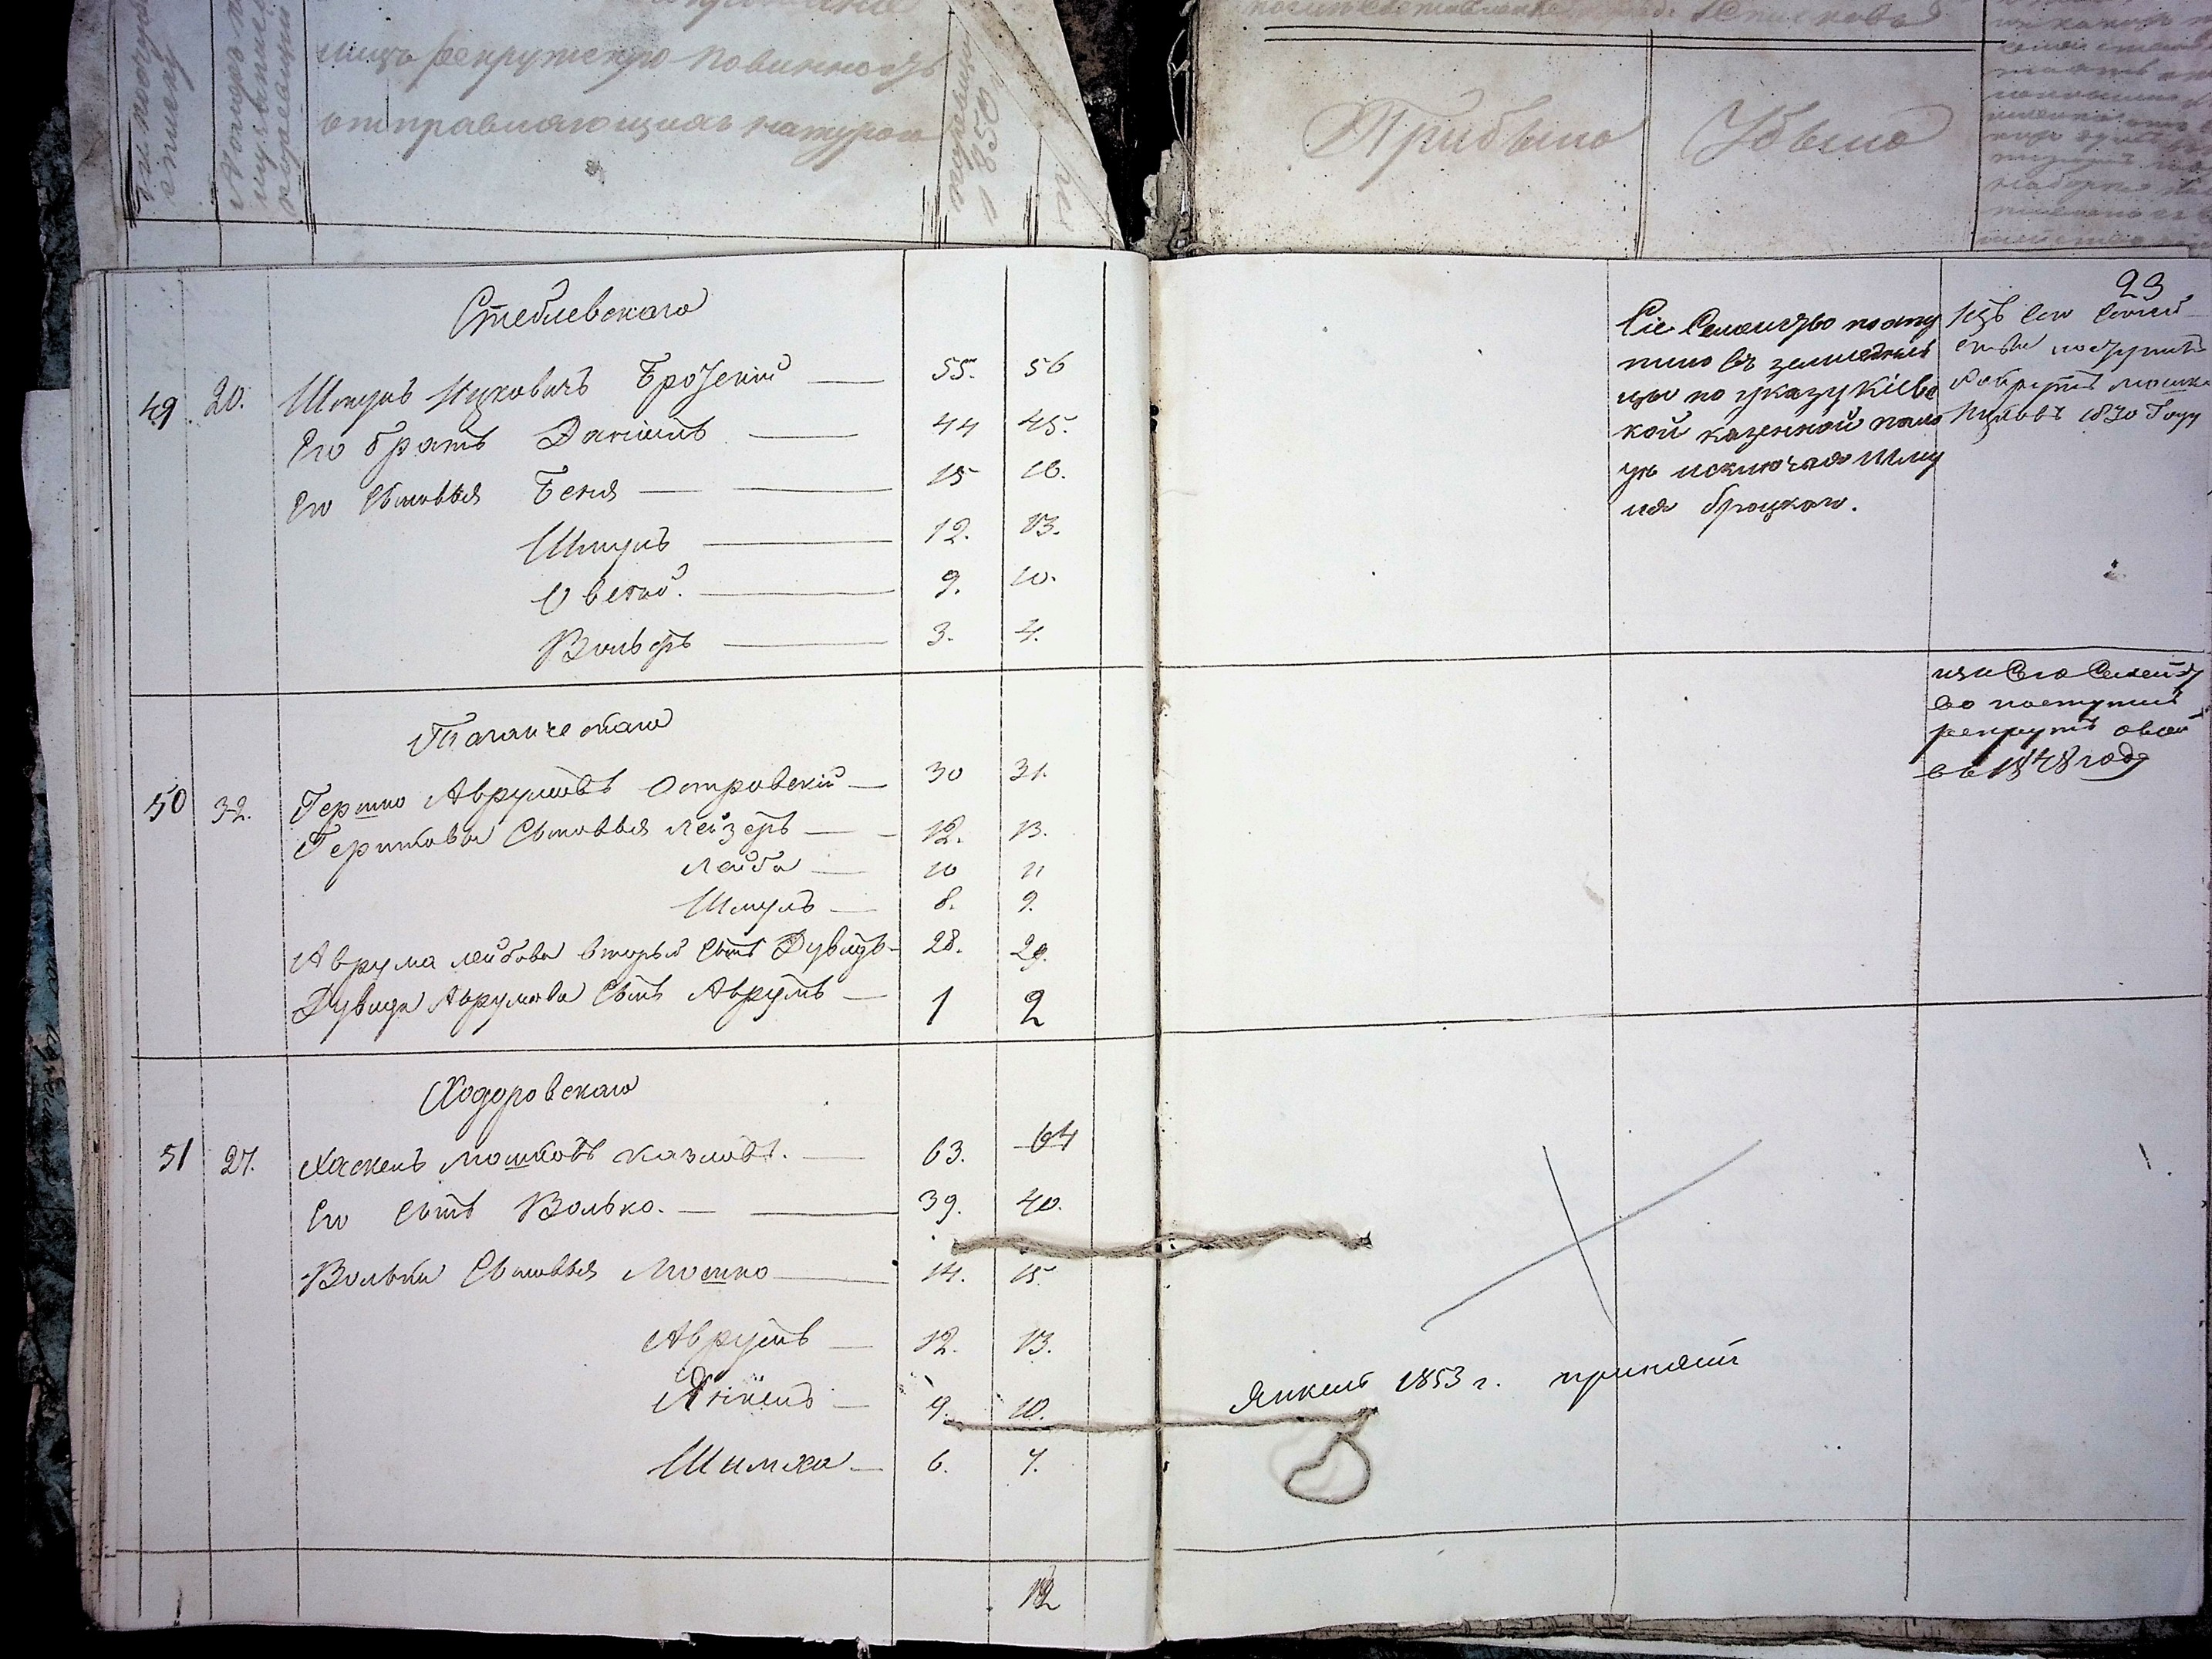 лицъ рекрутскую повинность
отправляющихъ натурою
1850
Прибыло
Убыло
23
Стеблевскаго
49 20. Шмуль Ицковичъ Бродскій 55. 56
Его братъ Даніилъ 44 45.
Его Сыновья Беня 15 16.
Шмуль 12. 13.
Овсей. 9. 10.
Вольфъ 3. 4.
Сіе Семейство посту
пило въ земледель
цы по указу Кіевс
кой казенной пала
ты исключая Шму
ля Броцкаго.
Изъ сего Семей
ства поступилъ
Рекрутъ Мошко
Ицковъ 1830 Году
Таганческаго
50 32. Гершко Аврумовъ Островскій 30 31.
Гершковы Сыновья Лейзеръ 12. 13.
Лейба 10 11
Шмуль 8. 9.
Аврума Лейбова вторый Сынъ Дувидъ 28. 29.
Дувида Аврумова Сынъ Аврумъ 1 2
изъ Сего Семейст
во поступилъ
рекрутъ
въ 1848 годе
Ходоровскаго
51 27. Хаскель Мошковъ Казловъ. 63. 64
Его Сынъ Волько. 39. 40.
Волька Сыновья Мошко 14. 15.
Аврумъ 12. 13.
Янкель 9. 10.
Шимха 6. 7.
Янкель 1853 г. принятъ
12